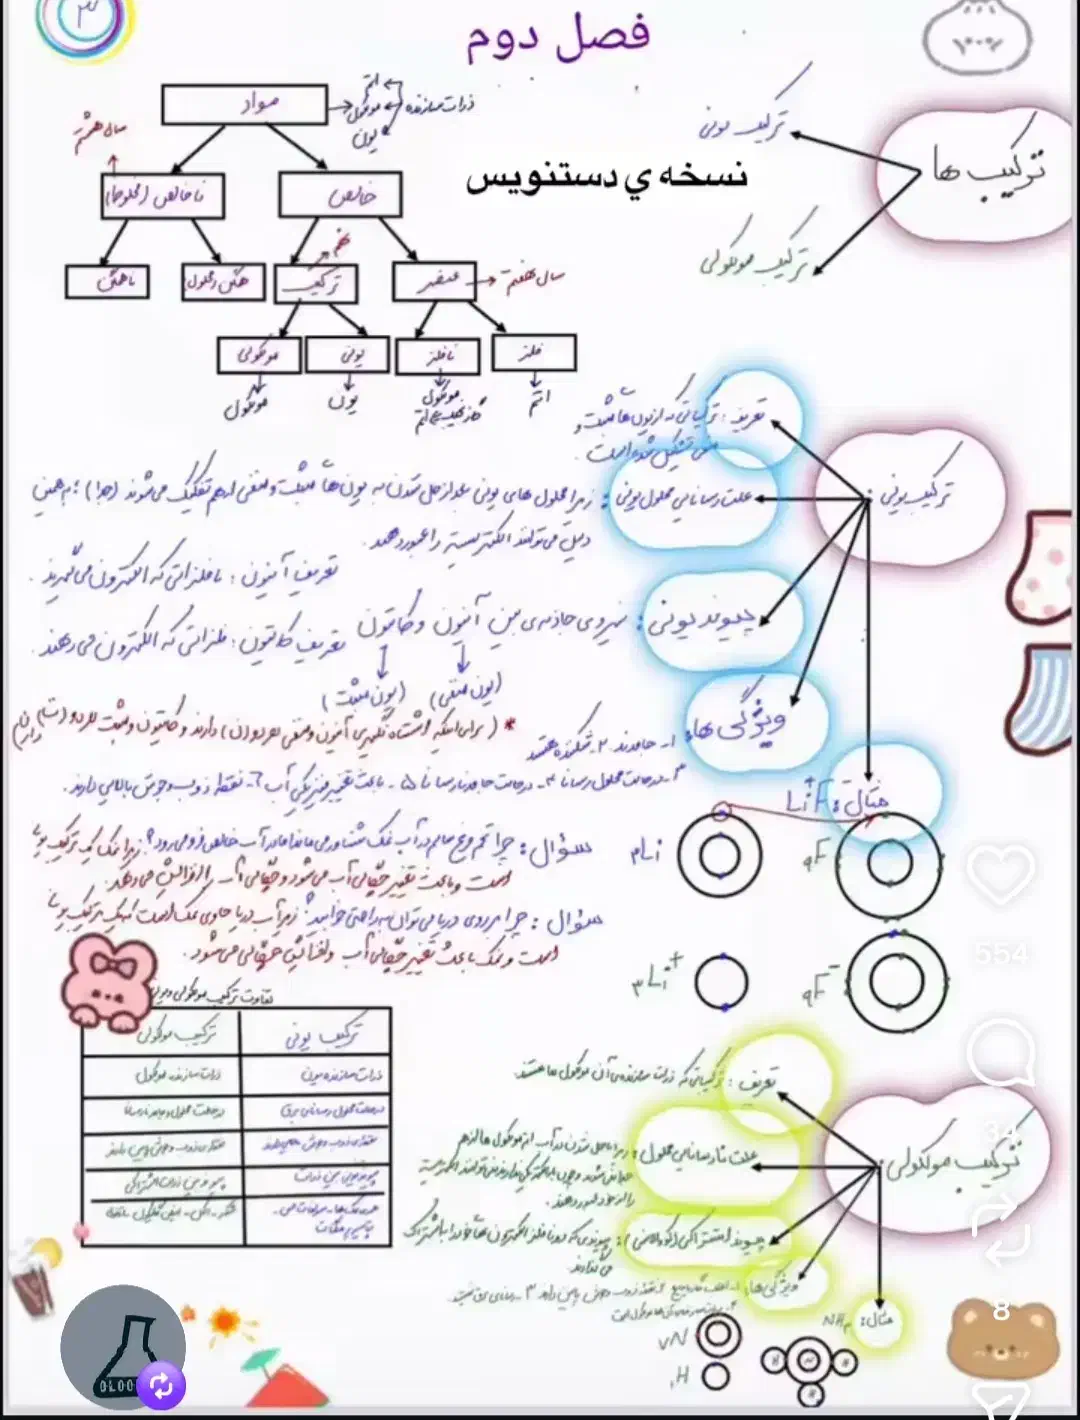 ۳
فصل دوم
مواد
ذرات سازنده
اتم
مولکول
یون
سال هشتم
ناخالص (مخلوط)
خالص
نسخه ي دستنویس
ترکیب ها
ترکیب یونی
ترکیب مولکولی
ناهمگن
همگن (محلول)
ترکیب
نهم
عنصر
سال هفتم
مولکولی
یونی
نافلز
فلز
مولکول
یون
مولکول
اتم
ترکیب یونی:
تعریف: ترکیباتی که از یون ها مثبت و
منفی تشکیل شده است.
علت رسانایی محلول یونی: زیرا محلول های یونی بعد از حل شدن به یون ها مثبت و منفی از هم تفکیک می شوند (جدا)؛ به همین
دلیل می توانند الکتریسیته را عبور دهند.
تعریف آنیون: نافلزاتی که الکترون می گیرند.
پیوند یونی: نیروی جاذبه ی بین آنیون و کاتیون
تعریف کاتیون: فلزاتی که الکترون می دهند.
(یون منفی) (یون مثبت)
* (برای اینکه اشتباه نگیرید آنیون و منفی هر دو (ن) دارند و کاتیون و مثبت هر دو (ت) دارند)
ویژگی ها: ۱- جامدند ۲- شکننده هستند
۳- در حالت محلول رسانا ۴- در حالت جامد نارسانا ۵- باعث تغییر فیزیکی آب ۶- نقطه ذوب و جوش بالایی دارند.
مثال: Li⁺F⁻
سؤال: چرا تخم مرغ سالم در آب نمک شناور می ماند اما در آب خالص فرو می رود؟ زیرا نمک یک ترکیب یونی
است و باعث تغییر چگالی آب می شود و چگالی آب را افزایش می دهد.
سؤال: چرا بر روی دریا می توان به راحتی خوابید؟ زیرا آب دریا حاوی نمک است نمک یک ترکیب یونی
است و نمک باعث تغییر چگالی آب و افزایش چگالی می شود.
₃Li
₉F
₃Li⁺
₉F⁻
تفاوت ترکیب مولکولی و یونی
ترکیب یونی
ترکیب مولکولی
ذرات سازنده یون
ذرات سازنده مولکول
در حالت محلول رسانای برق
در حالت محلول و جامد نارسانا
نقطه ی ذوب و جوش بالایی دارند
نقطه ی ذوب و جوش پایین دارند
پیوند یونی بین ذرات
پیوند بین ذرات اشتراکی
ترکیب مولکولی:
تعریف: ترکیباتی که ذرات سازنده ی آن مولکول ها هستند.
علت نارسانایی محلول: زیرا با حل شدن در آب از مولکول ها از هم
پیوند اشتراکی (کووالانسی): پیوندی که دو نافلز الکترون ها خود را به اشتراک
می گذارند
ویژگی ها:
مثال: NH₃
₇N
₁H
H
N
H
H
554
34
8